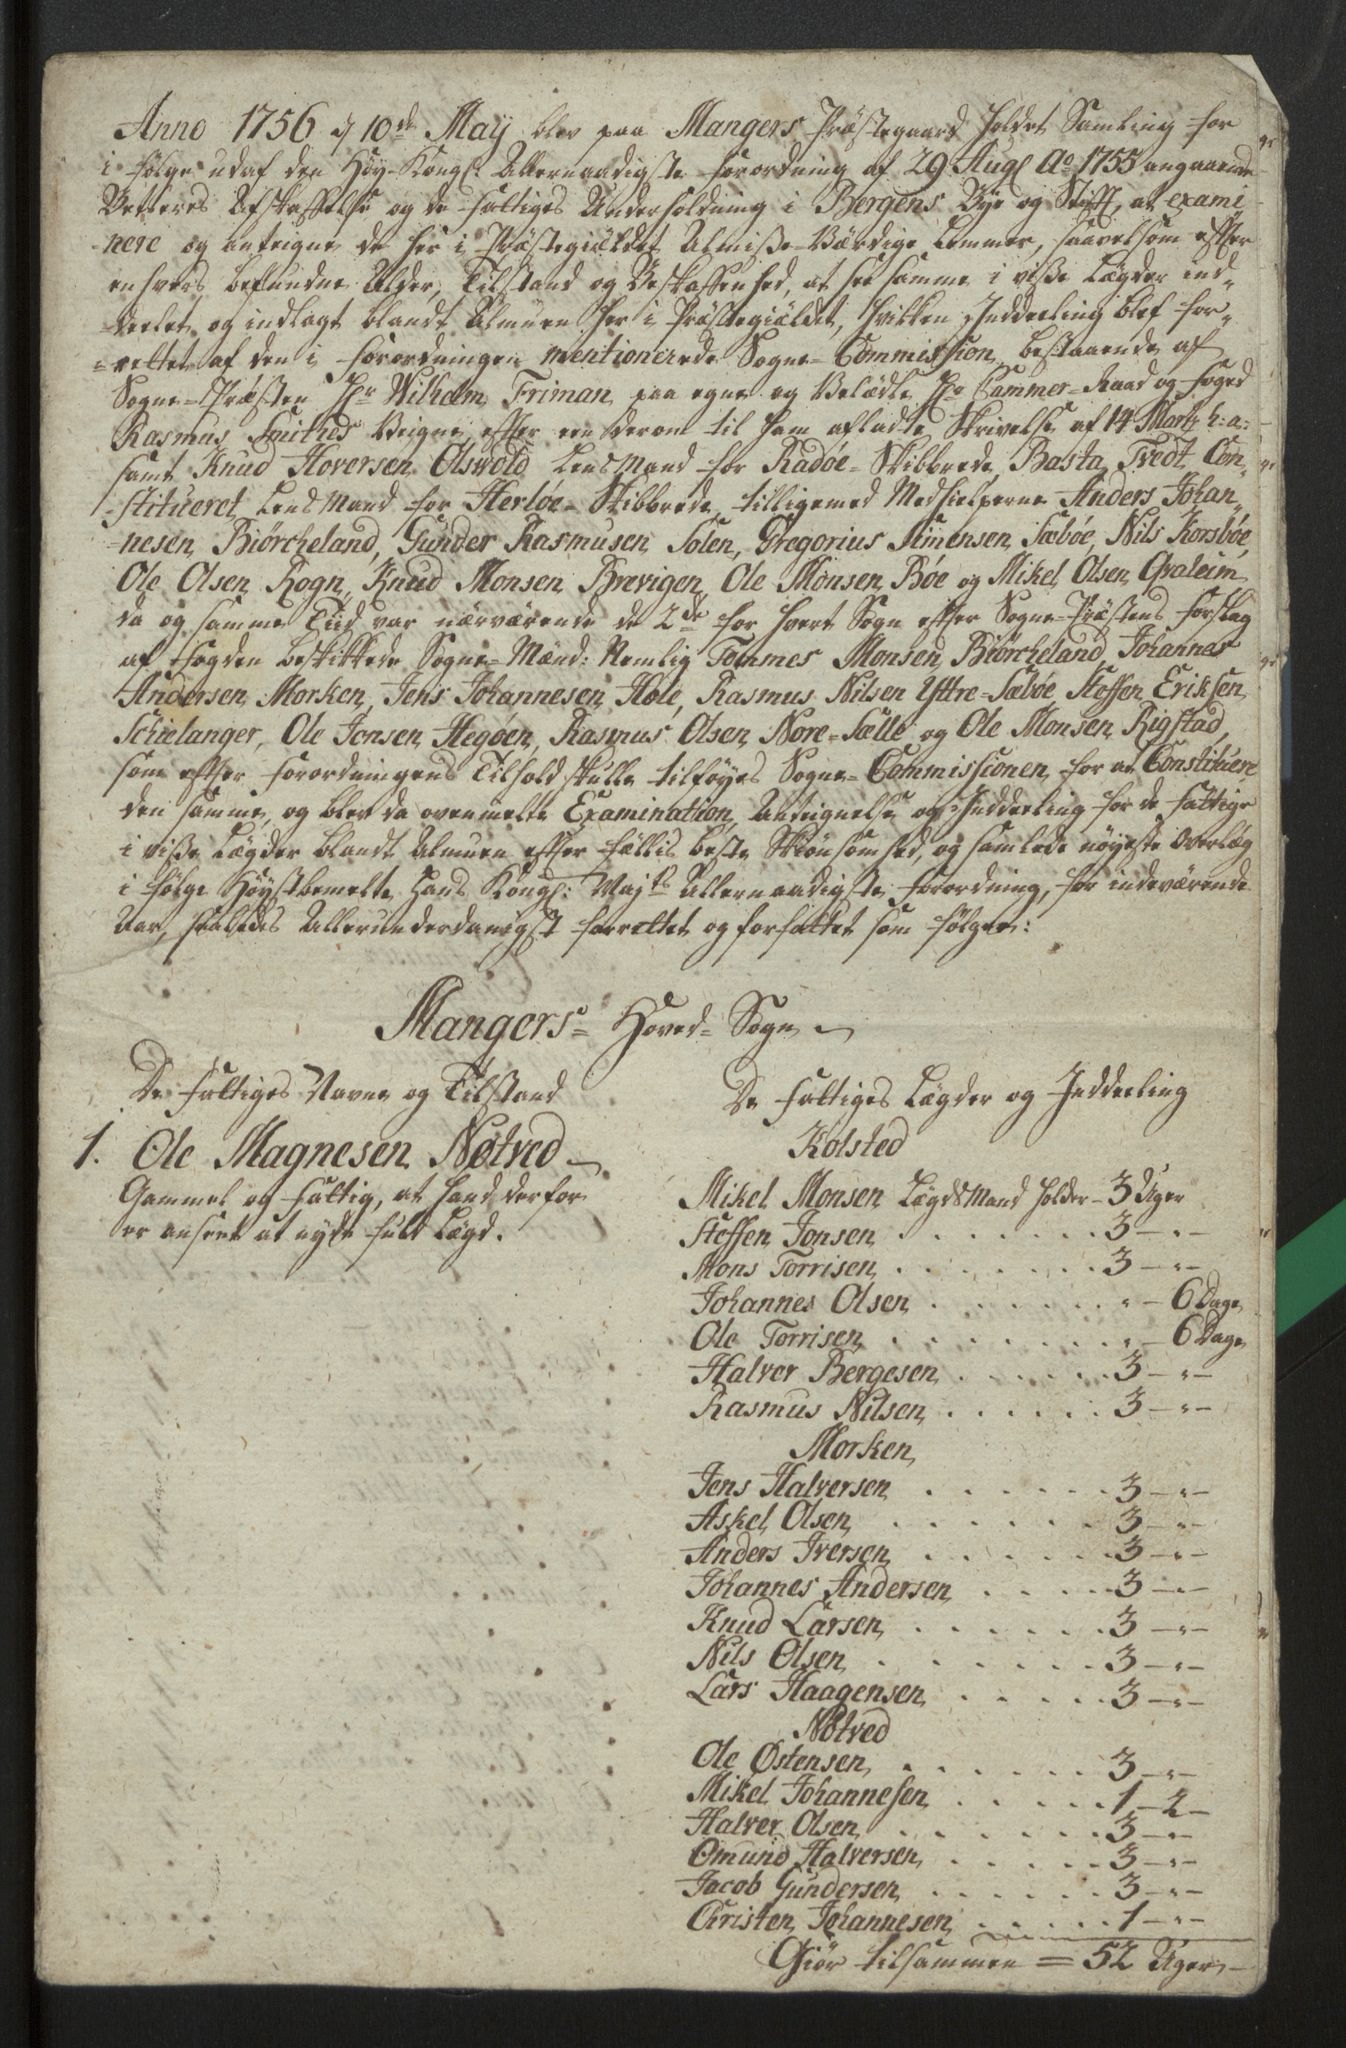 Anno 1756 d 10de Maij blev paa Mangers Præstegaard holdet Samling for
i følge udaf den Høy-Kongl. Allernaadigste Forordning af 29 Aug. Ao 1755 angaaende
Betleres Afskaffelse og de Fattiges Underholdning i Bergens Bye og Stift, at exami-
-nere og anteigne de her i Præstegieldet Almisse-Værdige Lemmer, saavelsom efter
enhvers befundne Alder, Tilstand og Beskaffenhed, at see samme i visse Lægder ind-
-deelet og indlagt blandt Almuen her i Præstegieldet, hvilken Inddeeling blef for-
-rettet af den i Forordningen mentionerede Sogne-Commission, bestaaende af
Sogne-Præsten Hr Wilhelm Friman paa egne og Velædle Hr Cammer-Raad og Foged
Rasmus Smithes Veigne, efter een derom til ham afladte Skrivelse af 14 Martj h: a:
samt Knud Hoversen Olswold Lensmand for Radøe-Skibbrede, Basta Tvedt Con-
-stitueret Lensmand for Herløe-Skibbrede, tilligemed Medhielperne Anders Johan-
-nesen Biørcheland, Gunder Rasmusen Solen, Gregorius Simensen Sæbøe, Nils Korsbøe,
Ole Olsen Rogn, Knud Monsen Brevigen, Ole Monsen Bøe og Mikel Olsen Qvaleim,
da og samme Tiid var nærværende de 2de for hvert Sogn efter Sogne-Præstens Forslag
af Fogden beskikkede Sogne-Mænd: Nemlig Tommes Monsen Biørcheland, Johannes
Andersen Morken, Jens Johannesen Hole, Rasmus Nilsen Yttre-Sæbøe, Stoffen Eriksen
Schielanger, Ole Jonsen Hegøen, Rasmus Olsen Nore-Sælle og Ole Monsen Rigstad,
som efter Forordningens Tilhold skulle tilføyes Sogne-Commissionen, for at Constituere
den samme, og blev da ovenmelte Examination, Anteignelse og Inddeeling for de Fattige
i visse Lægder blandt Almuen efter fællis beste Skiønsomhed, og samlede nøyeste Overlæg
i følge Høystbemelte Hans Kongl: Mayts Allernaadigste Forordning, for indeværende
Aar, saaledes Allerunderdanigst forrettet og forfattet som følger:
Mangers- Hoved-Sogn
De Fattiges Navne og Tilstand
De Fattiges Lægder og Inddeeling
1. Ole Magnesen Nøtved
Gammel og fattig, at hand derfor
er anseet at nyde fuld Lægd.
Kolsted
Mikel Monsen Lægdsmand holder - 3 Uger
Stoffen Jonsen . . . . . . . 3 — " —
Mons Torrisen . . . . . . . 3 — " —
Johannes Olsen . . . . . . " — 6 Dage
Ole Torrisen . . . . . . . " — 6 Dage
Halver Bergesen . . . . . . 3 — " —
Rasmus Nilsen . . . . . . 3 — " —
Morken
Jens Halversen . . . . . . 3 — " —
Askel Olsen . . . . . . 3 — " —
Anders Iversen . . . . . . 3 — " —
Johannes Andersen . . . . . 3 — " —
Knud Larsen . . . . . . 3 — " —
Nils Olsen . . . . . . . 3 — " —
Lars Haagensen . . . . . 3 — " —
Nøtved
Ole Østensen . . . . . . 3 — " —
Mikel Johannesen . . . . . 1 — 2 —
Halver Olsen . . . . . . 3 — " —
Omund Halversen . . . . . 3 — " —
Jacob Gundersen . . . . . . 3 — " —
Christen Johannesen . . . . . 1 — " —
Giør tilsammen = 52 Uger